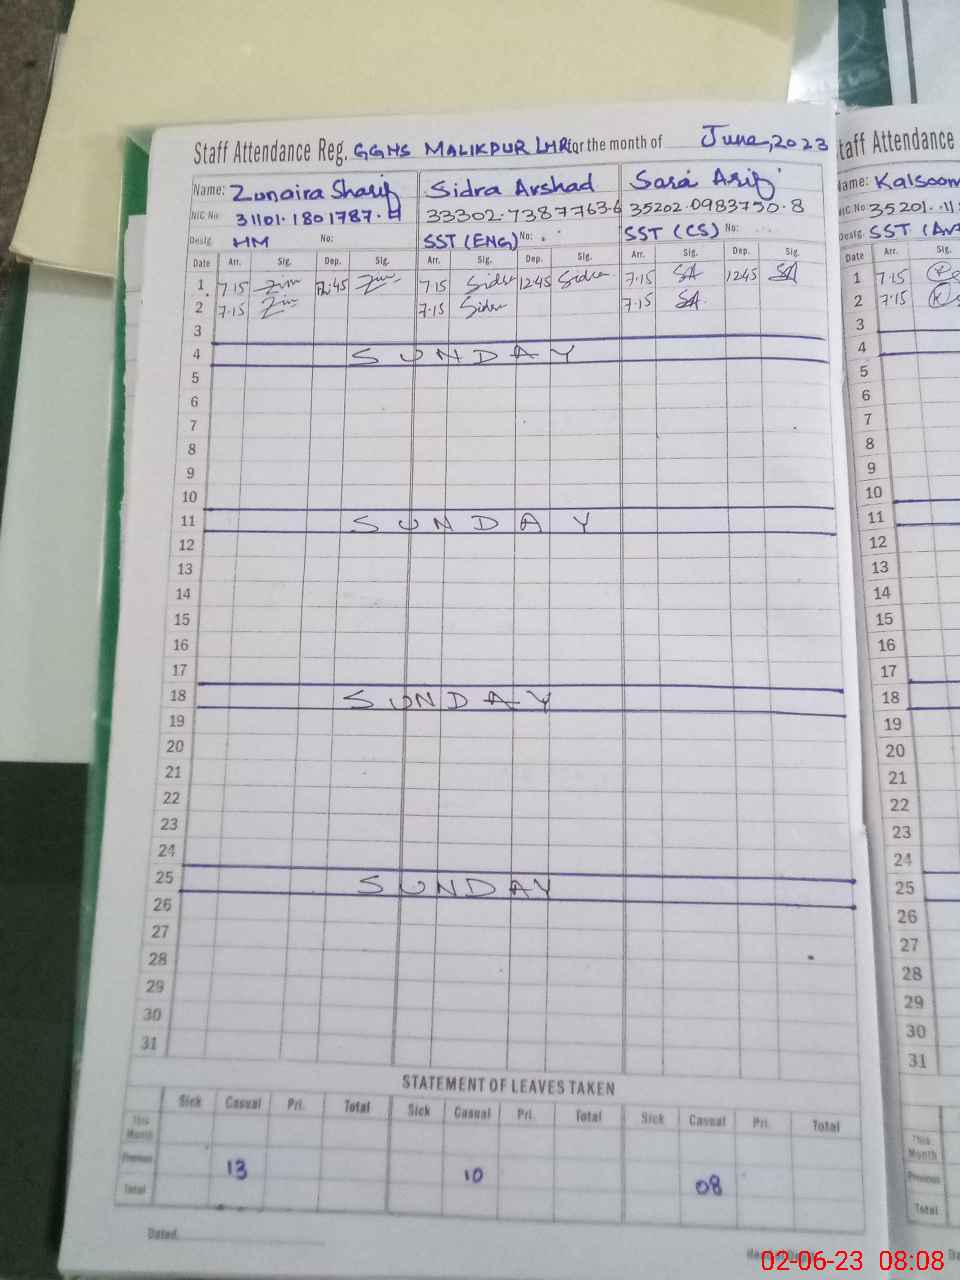 Staff Attendance Reg. GGHS MALIKPUR LHR for the month of June, 2023
Name: Zunaira Sharif Sidra Arshad Sara Arif
NIC No 31101.1801787.4 33302.7387763.6 35202.0983750.8
Desig. HM No: SST (ENG) No: SST (CS) No:
Date Arr. Sig. Dep. Sig. Arr. Sig. Dep. Sig. Arr. Sig. Dep. Sig.
1 7.15 12.45 7.15 Sidra 12.45 Sidra 7.15 SA 12.45 SA
2 7.15 7.15 Sidra 7.15 SA
3
4 SUNDAY
5
6
7
8
9
10
11 SUNDAY
12
13
14
15
16
17
18 SUNDAY
19
20
21
22
23
24
25 SUNDAY
26
27
28
29
30
31
STATEMENT OF LEAVES TAKEN
Sick Casual Pri. Total Sick Casual Pri. Total Sick Casual Pri. Total
This Month
Previous 13 10 08
Total
Dated
taff Attendance
Name: Kalsoom
NIC No: 35201.
Desig. SST
Date Arr. Sig.
1 7.15
2 7.15
3
4
5
6
7
8
9
10
11
12
13
14
15
16
17
18
19
20
21
22
23
24
25
26
27
28
29
30
31
This Month
Previous
Total
02-06-23 08:08